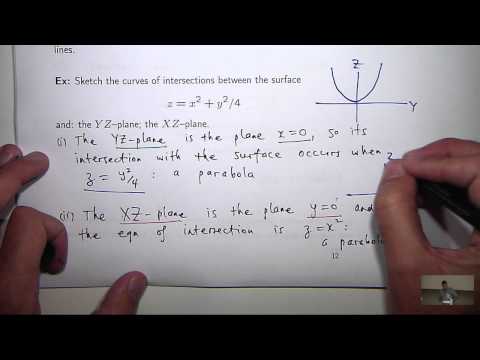 lines.
Ex: Sketch the curves of intersections between the surface
z = x² + y²/4
and: the YZ–plane; the XZ–plane.
(i) The YZ-plane is the plane x=0, so its
intersection with the surface occurs when
z = y²/4 : a parabola
(ii) The XZ-plane is the plane y=0 and
the eqn of intersection is z=x² :
a parabola
12
Z
Y
z